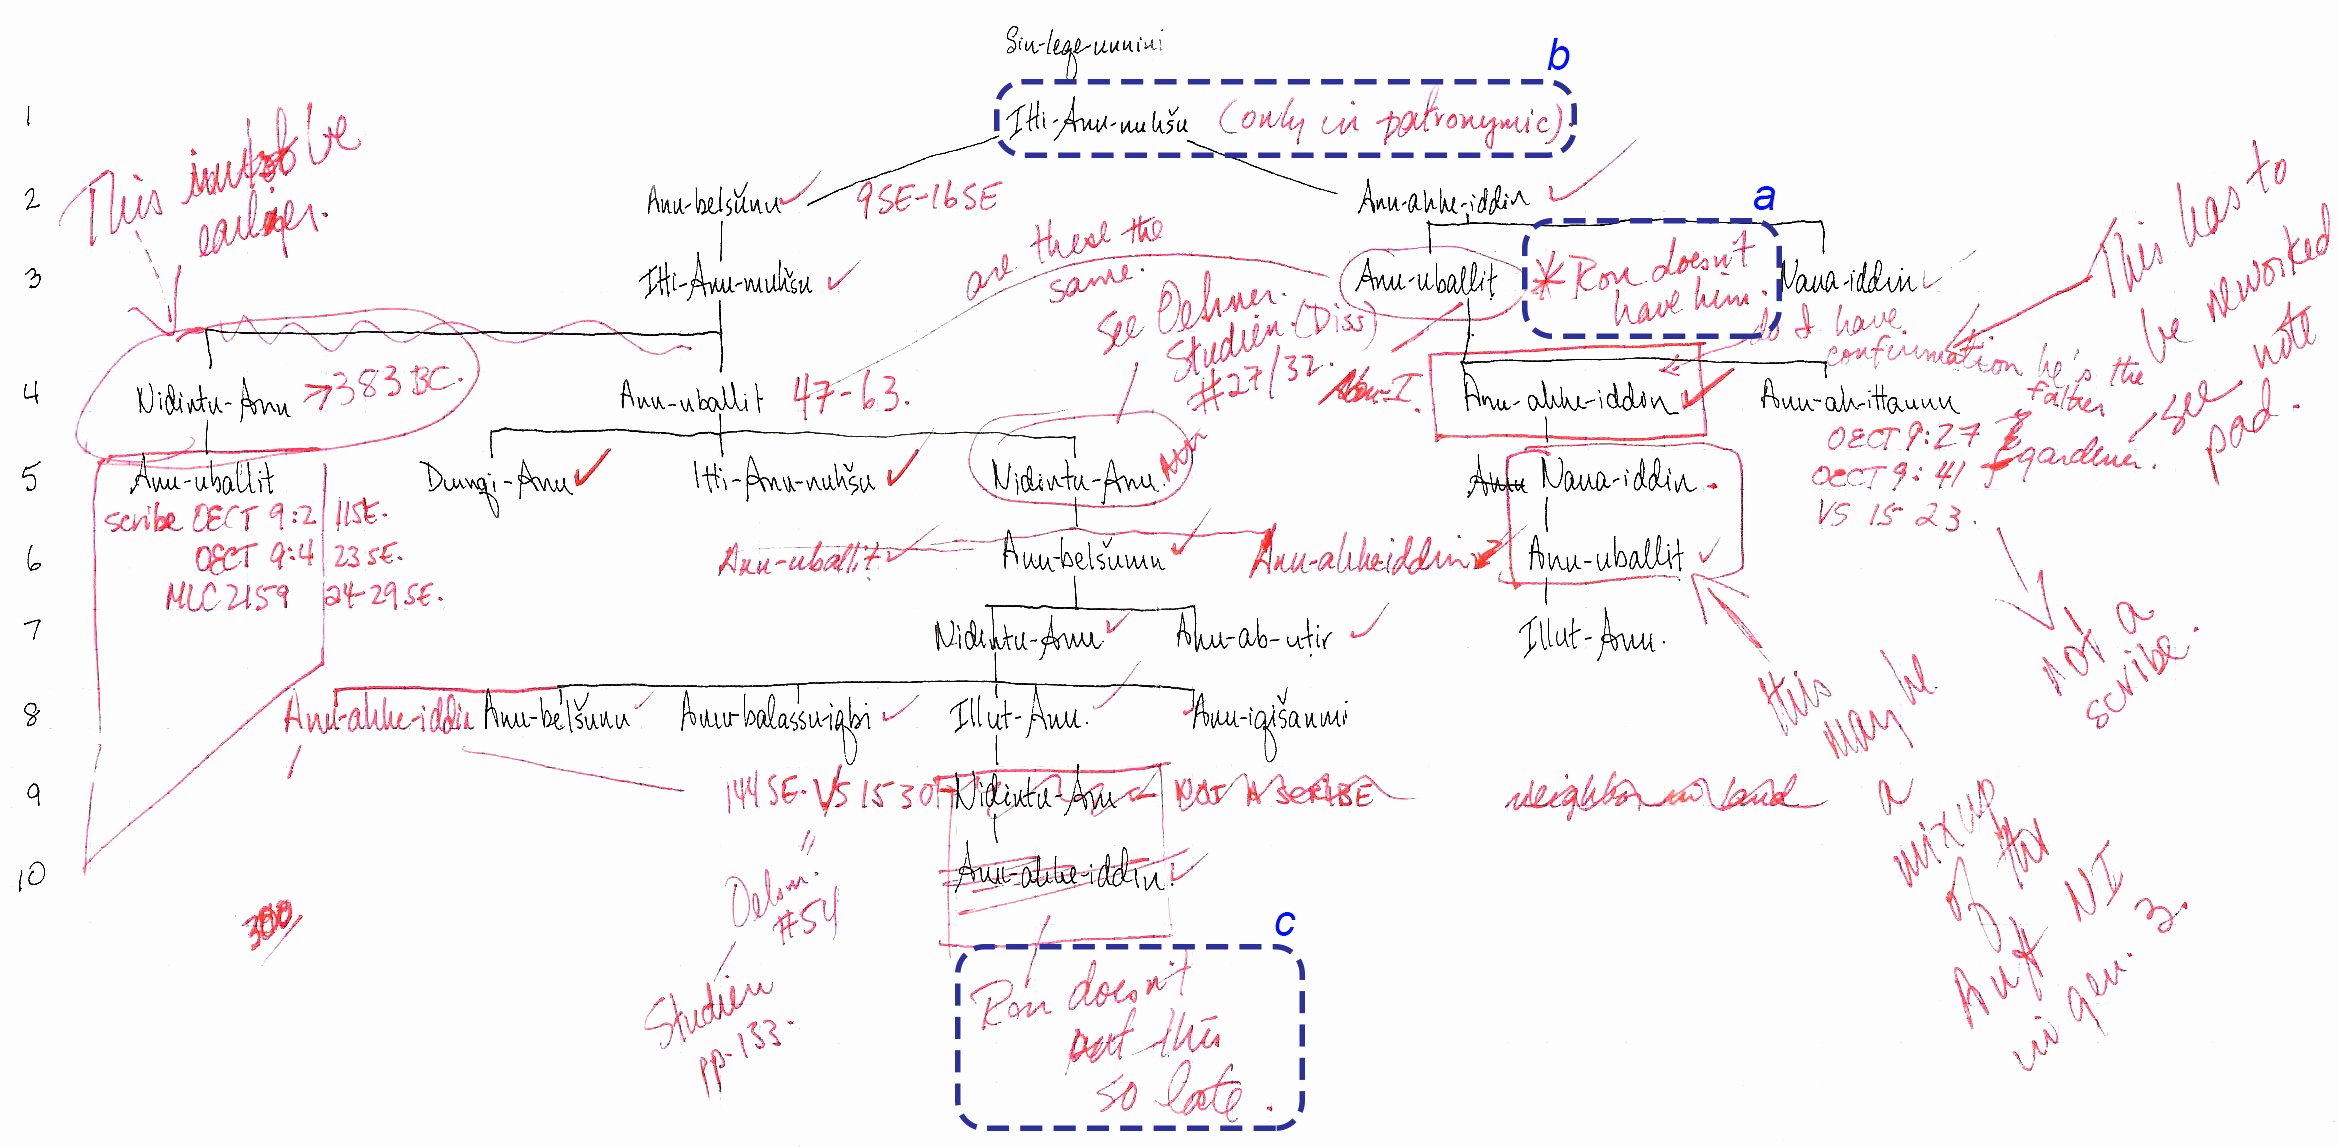 Sin-leqe-unnini
b
1
Itti-Anu-nuhšu (only in patronymic)
This must be
earlier.
2
Anu-belšunu
9SE-16SE
Anu-ahhe-iddin
a
are these the
same.
3
Itti-Anu-nuhšu
Anu-uballit
* Ron doesn't
have him.
Nana-iddin
This has to
be reworked
see note
pad.
see Oelsner.
Studien (Diss)
#27/32.
do I have
confirmation he's the
father
4
Nidintu-Anu → 383 BC.
Anu-uballit 47-63.
Anu-ahhe-iddin
Anu-ah-ittannu
OECT 9:27
OECT 9:41
gardener.
VS 15 23.
not a
scribe.
5
Anu-uballit
Dumqi-Anu
Itti-Anu-nuhšu
Nidintu-Anu
Anu Nana-iddin
scribe OECT 9:2 11SE.
OECT 9:4 23SE.
MLC 2159 24-29SE.
6
Anu-uballit
Anu-belšunu
Anu-ahhe-iddin
Anu-uballit
7
Nidintu-Anu
Anu-ab-utir
Illut-Anu.
this
may be
a
mixup
of the
in gen. 3.
8
Anu-ahhe-iddin
Anu-belšunu
Anu-balassu-iqbi
Illut-Anu.
Anu-iqišanni
9
144SE. VS 15 30
Nidintu-Anu
NOT A SCRIBE
neighbor in land
10
Anu-ahhe-iddin
300
"
Oelsn.
#54
Studien
pp. 133.
c
Ron doesn't
put this
so late.